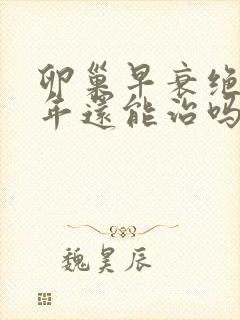 卵巢早衰绝
年還能治吗
魏昊辰